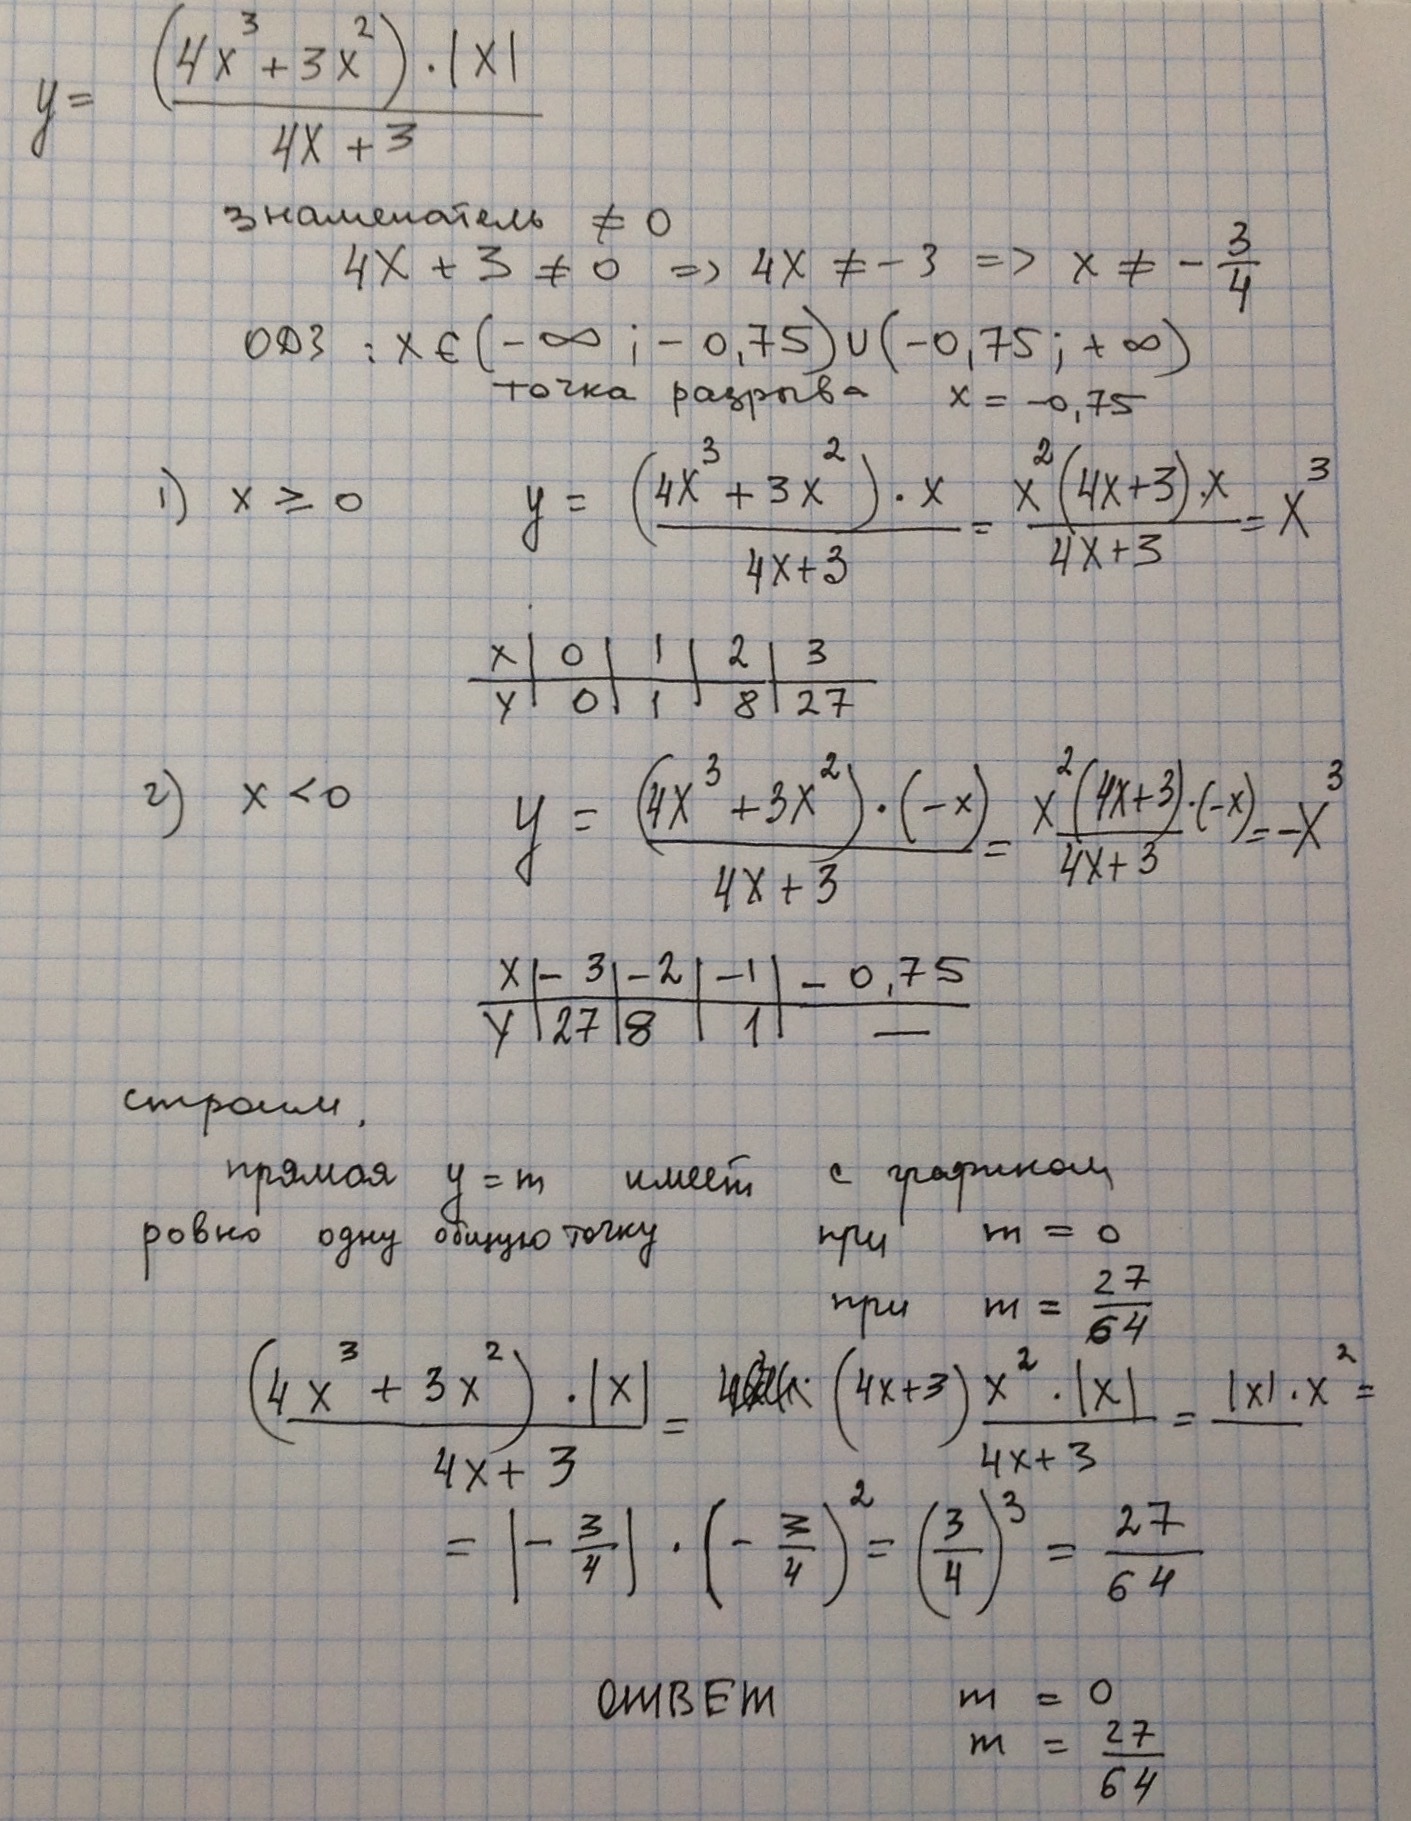 y = (4x³ + 3x²) · |x| / 4x + 3
знаменатель ≠ 0
4x + 3 ≠ 0 => 4x ≠ - 3 => x ≠ - 3/4
ОДЗ : x ∈ (- ∞ ; - 0,75) ∪ (-0,75 ; + ∞)
точка разрыва x = -0,75
1) x ≥ 0 y = (4x³ + 3x²) · x / 4x+3 = x² (4x+3) · x / 4x+3 = x³
x | 0 | 1 | 2 | 3
y | 0 | 1 | 8 | 27
2) x < 0 y = (4x³ + 3x²) · (-x) / 4x + 3 = x² (4x+3) · (-x) / 4x+3 = -x³
x | - 3 | - 2 | - 1 | - 0,75
y | 27 | 8 | 1 | —
строим.
прямая y = m имеет с графиком
ровно одну общую точку при m = 0
при m = 27/64
(4x³ + 3x²) · |x| / 4x + 3 = (4x+3) x² · |x| / 4x+3 = |x| · x² =
= |- 3/4| · (- 3/4)² = (3/4)³ = 27/64
ОТВЕТ m = 0
m = 27/64